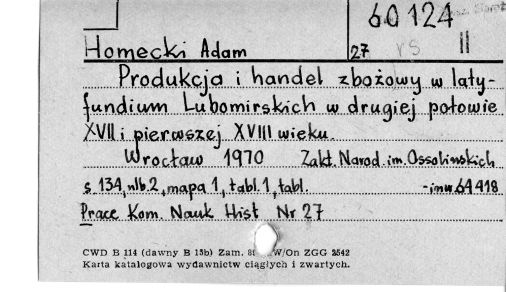 60124
Homecki Adam
27
II
Produkcja i handel zbożowy w laty-
fundium Lubomirskich w drugiej połowie
XVII i pierwszej XVIII wieku.
Wrocław 1970 Zakł. Narod. im. Ossolińskich
s. 134, nlb. 2, mapa 1, tabl. 1, tabl. -inw. 64418
Prace Kom. Nauk Hist Nr 27
CWD B 114 (dawny B 15b) Zam. W/On ZGG 2542
Karta katalogowa wydawnictw ciągłych i zwartych.